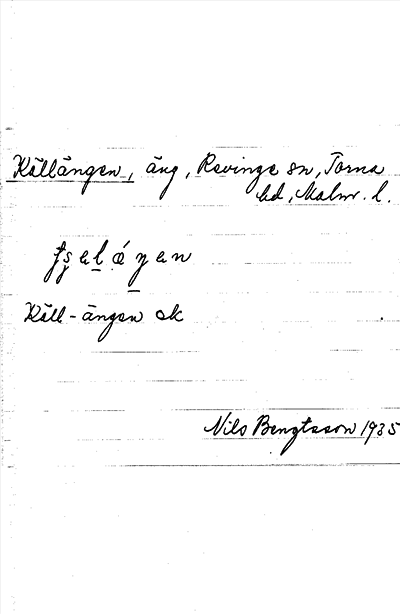 Källängen, äng, Revinge sn, Torna
hd, Malm. l.
Käll-ängen ok
Nils Bengtsson 1935